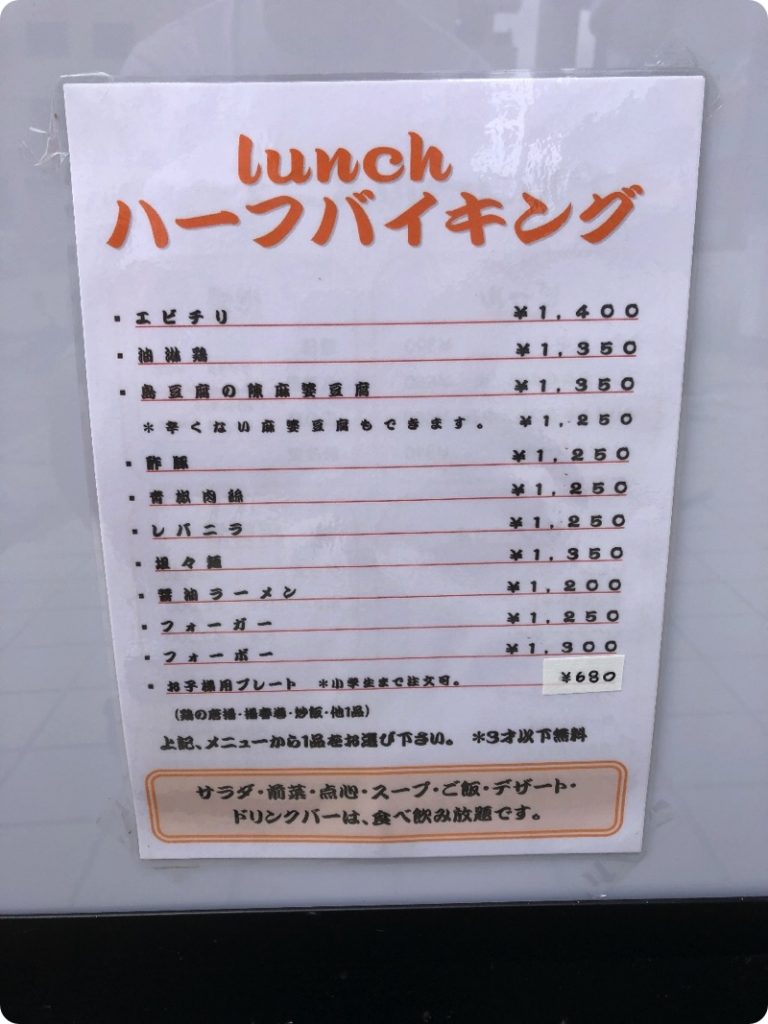 lunch
ハーフバイキング
・エビチリ ¥1,400
・油淋鶏 ¥1,350
・島豆腐の陳麻婆豆腐 ¥1,350
＊辛くない麻婆豆腐もできます。 ¥1,250
・酢豚 ¥1,250
・青椒肉絲 ¥1,250
・レバニラ ¥1,250
・坦々麺 ¥1,350
・醤油ラーメン ¥1,200
・フォーガー ¥1,250
・フォーボー ¥1,300
・お子様用プレート ＊小学生まで注文可。 ¥680
(鶏の唐揚・揚春巻・炒飯・他1品)
上記、メニューから1品をお選び下さい。 ＊3才以下無料
サラダ・前菜・点心・スープ・ご飯・デザート・
ドリンクバーは、食べ飲み放題です。